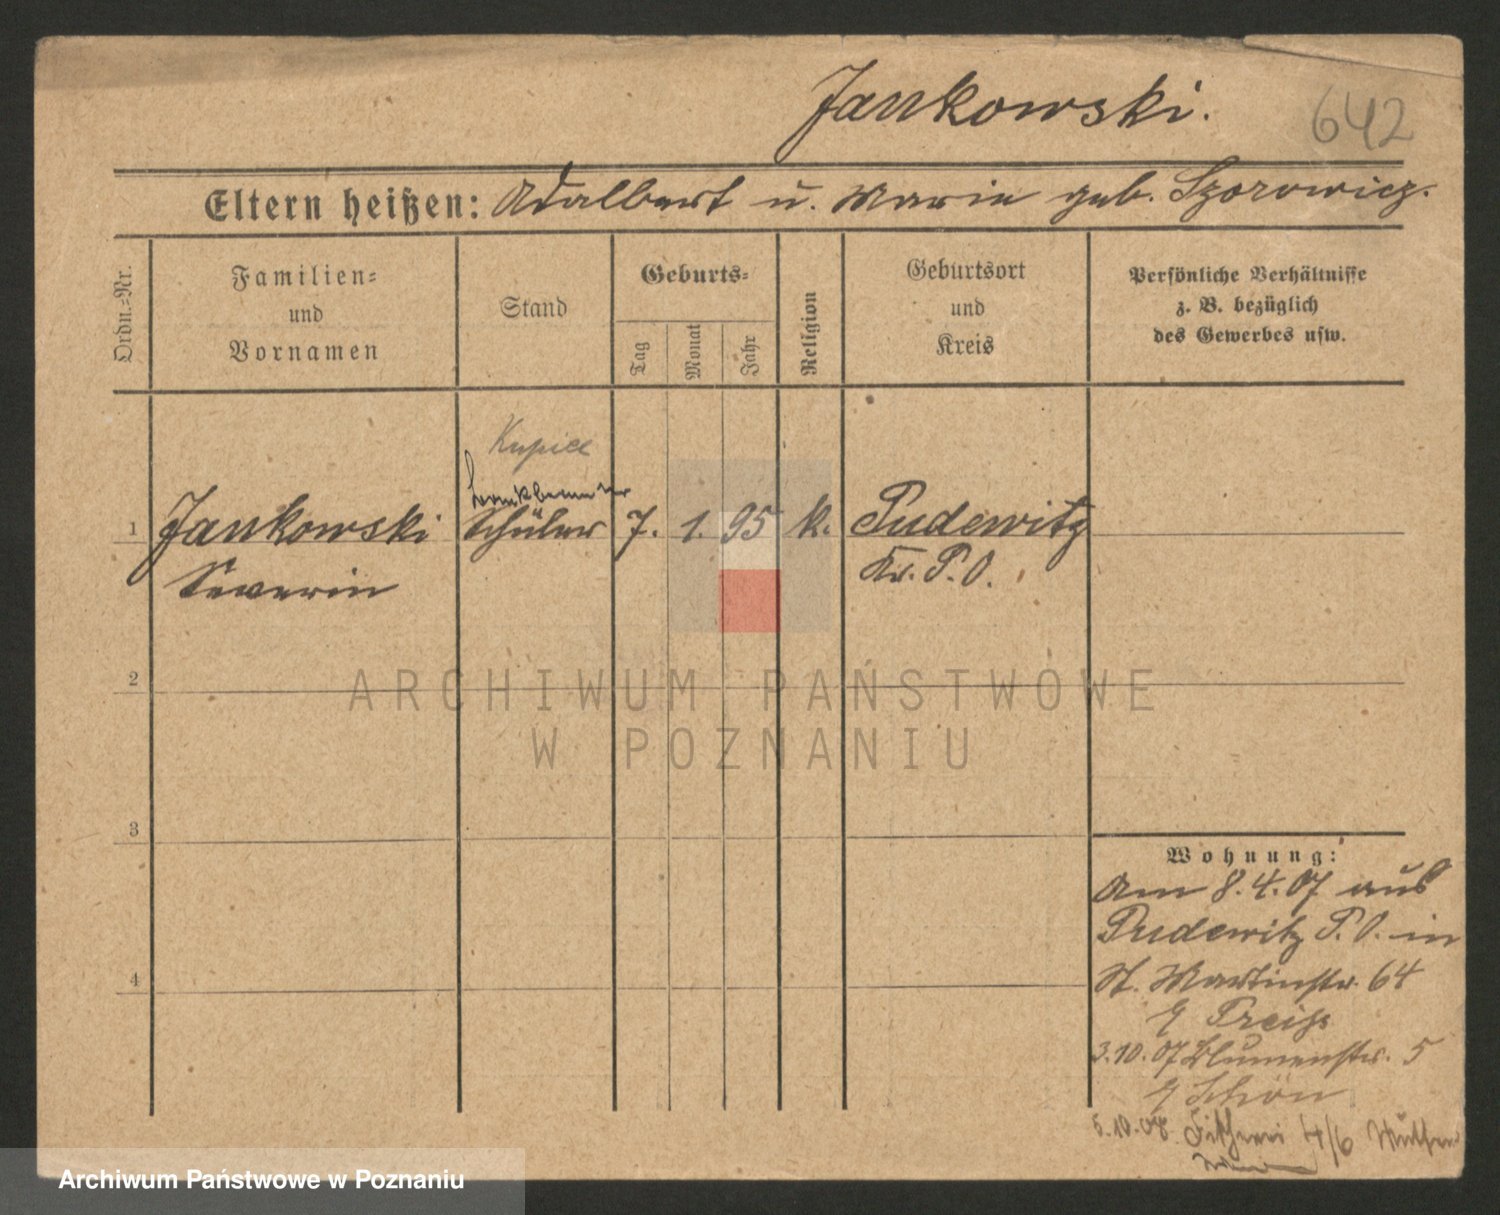 Jankowski.
642
Eltern heißen: Adalbert u. Marie geb. Szorowicz.
Ordn.=Nr.
Familien=
und
Vornamen
Stand
Geburts=
Tag
Monat
Jahr
Religion
Geburtsort
und
Kreis
Persönliche Verhältnisse
z. B. bezüglich
des Gewerbes usw.
1
Jankowski
Severin
Schüler
7.
1.
95
k.
Pudewitz
Kr. P. O.
2
3
4
Wohnung:
Am 8.4.07 aus
Pudewitz P. O. in
St. Martinstr. 64
Preiß
3.10.07 Blumenstr. 5
Schön
5.10.08
4/6
ARCHIWUM PAŃSTWOWE
W POZNANIU
Archiwum Państwowe w Poznaniu